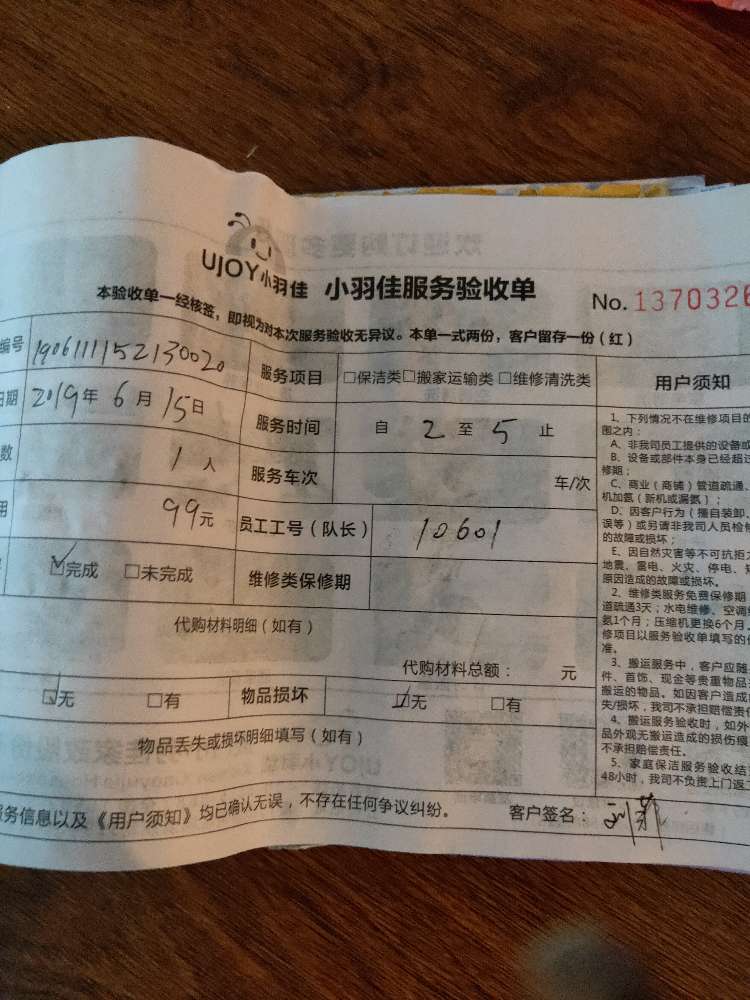 UJOY小羽佳 小羽佳服务验收单 No. 1370326
本验收单一经核签，即视为对本次服务验收无异议。本单一式两份，客户留存一份（红）
编号 1906111152130020 服务项目 □保洁类□搬家运输类 □维修清洗类
日期 2019年 6月 15日 服务时间 自 2 至 5 止
数 1人 服务车次 车/次
用 99元 员工工号（队长） 10601
☑完成 □未完成 维修类保修期
代购材料明细（如有）
代购材料总额： 元
☑无 □有 物品损坏 ☑无 □有
物品丢失或损坏明细填写（如有）
服务信息以及《用户须知》均已确认无误，不存在任何争议纠纷。 客户签名：
用户须知
1、下列情况不在维修项目的
围之内：
A、非我司员工提供的设备或
B、设备或部件本身已经超过
修期；
C、商业（商铺）管道疏通、
机加氨（新机或漏氨）；
D、因客户行为（擅自装卸、
误等）或另请非我司人员检修
的故障或损坏；
E、因自然灾害等不可抗拒
地震、雷电、火灾、停电、
原因造成的故障或损坏。
2、维修类服务免费保修期
道疏通3天；水电维修、空调
氨1个月；压缩机更换6个月。
修项目以服务验收单填写的
准。
3、搬运服务中，客户应随
件、首饰、现金等贵重物品
搬运的物品。如因客户造成
失/损坏，我司不承担赔偿责任
4、搬运服务验收时，如外
品外观无搬运造成的损伤痕
不承担赔偿责任。
5、家庭保洁服务验收结
48小时，我司不负责上门返